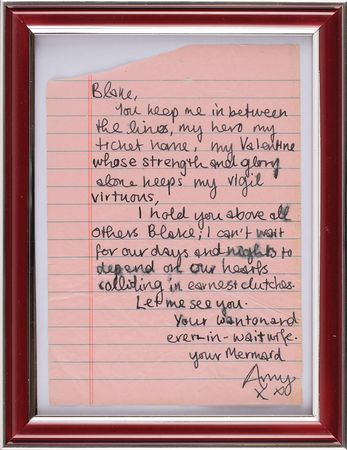 Blake,
You keep me in between
the lines, my hero my
ticket home, my Valentine
whose strength and glory
alone keeps my vigil
virtuous,
I hold you above all
others Blake; I can't wait
for our days and nights to
depend on our hearts
colliding in earnest clutches.
Let me see you.
Your wanton and
ever-in-wait wife.
your Mermaid
Amy
x xo